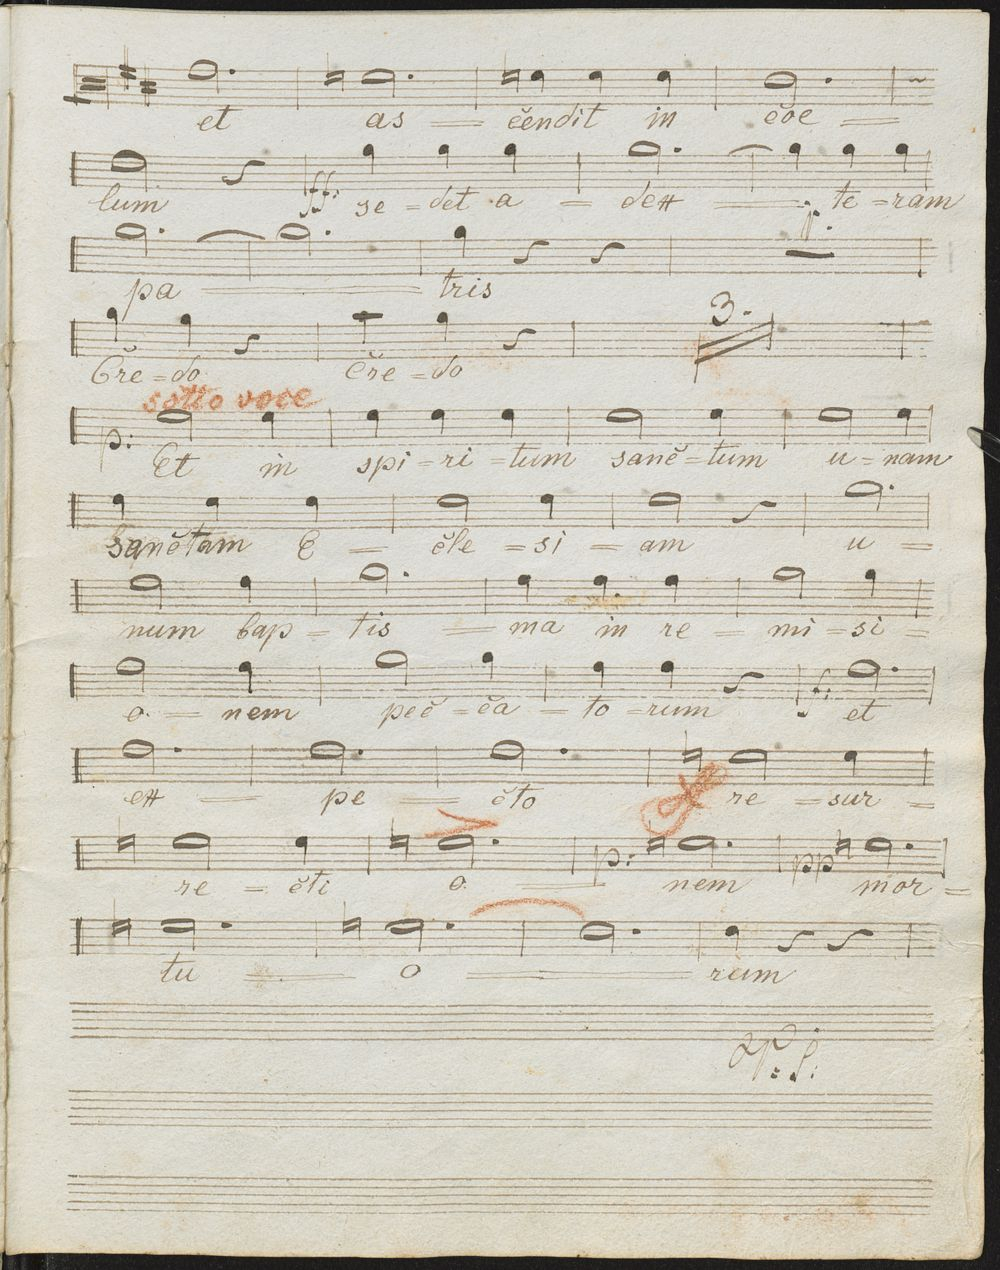 et as = čendit in čoe =
lum ff: se - det a - dex = te - ram
pa = tris 1.
Cre - do Cre - do 3.
sotto voce
p: Et in spi - ri - tum sanč - tum u - nam
Sančtam E - čle - si - am u =
num bap - tis = ma in re - mi - si =
o - nem peč - ča - to - rum f: et
ex - pe - čto re - sur =
p: pp
re - čti o = nem mor =
tu = o = rum